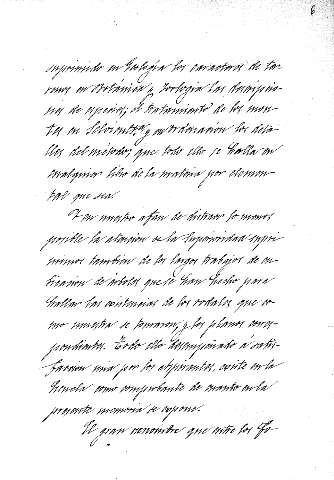 6
suprimido en Geología los caracteres de te-
rrenos en Botánica y Zoología las descripcio-
nes de especies; el tratamiento de los mon-
tes en Selvicultura y en Ordenación los deta-
lles del método; que todo ello se halla en
cualquier libro de la materia por elemen-
tal que sea.
Y en nuestro afan de distraer lo menos
posible la atencion de la Superioridad supri-
mimos tambien de los largos trabajos de cu-
bicacion de árboles que se han hecho para
hallar las existencias de los rodales que co-
mo muestra se tomaron; y los planos corres-
pondientes. Todo ello desempeñado a satis-
faccion mia por los aspirantes, existe en la
Escuela como comprobante de cuanto en la
presente memoria se expone.
El gran renombre que entre los Fo-